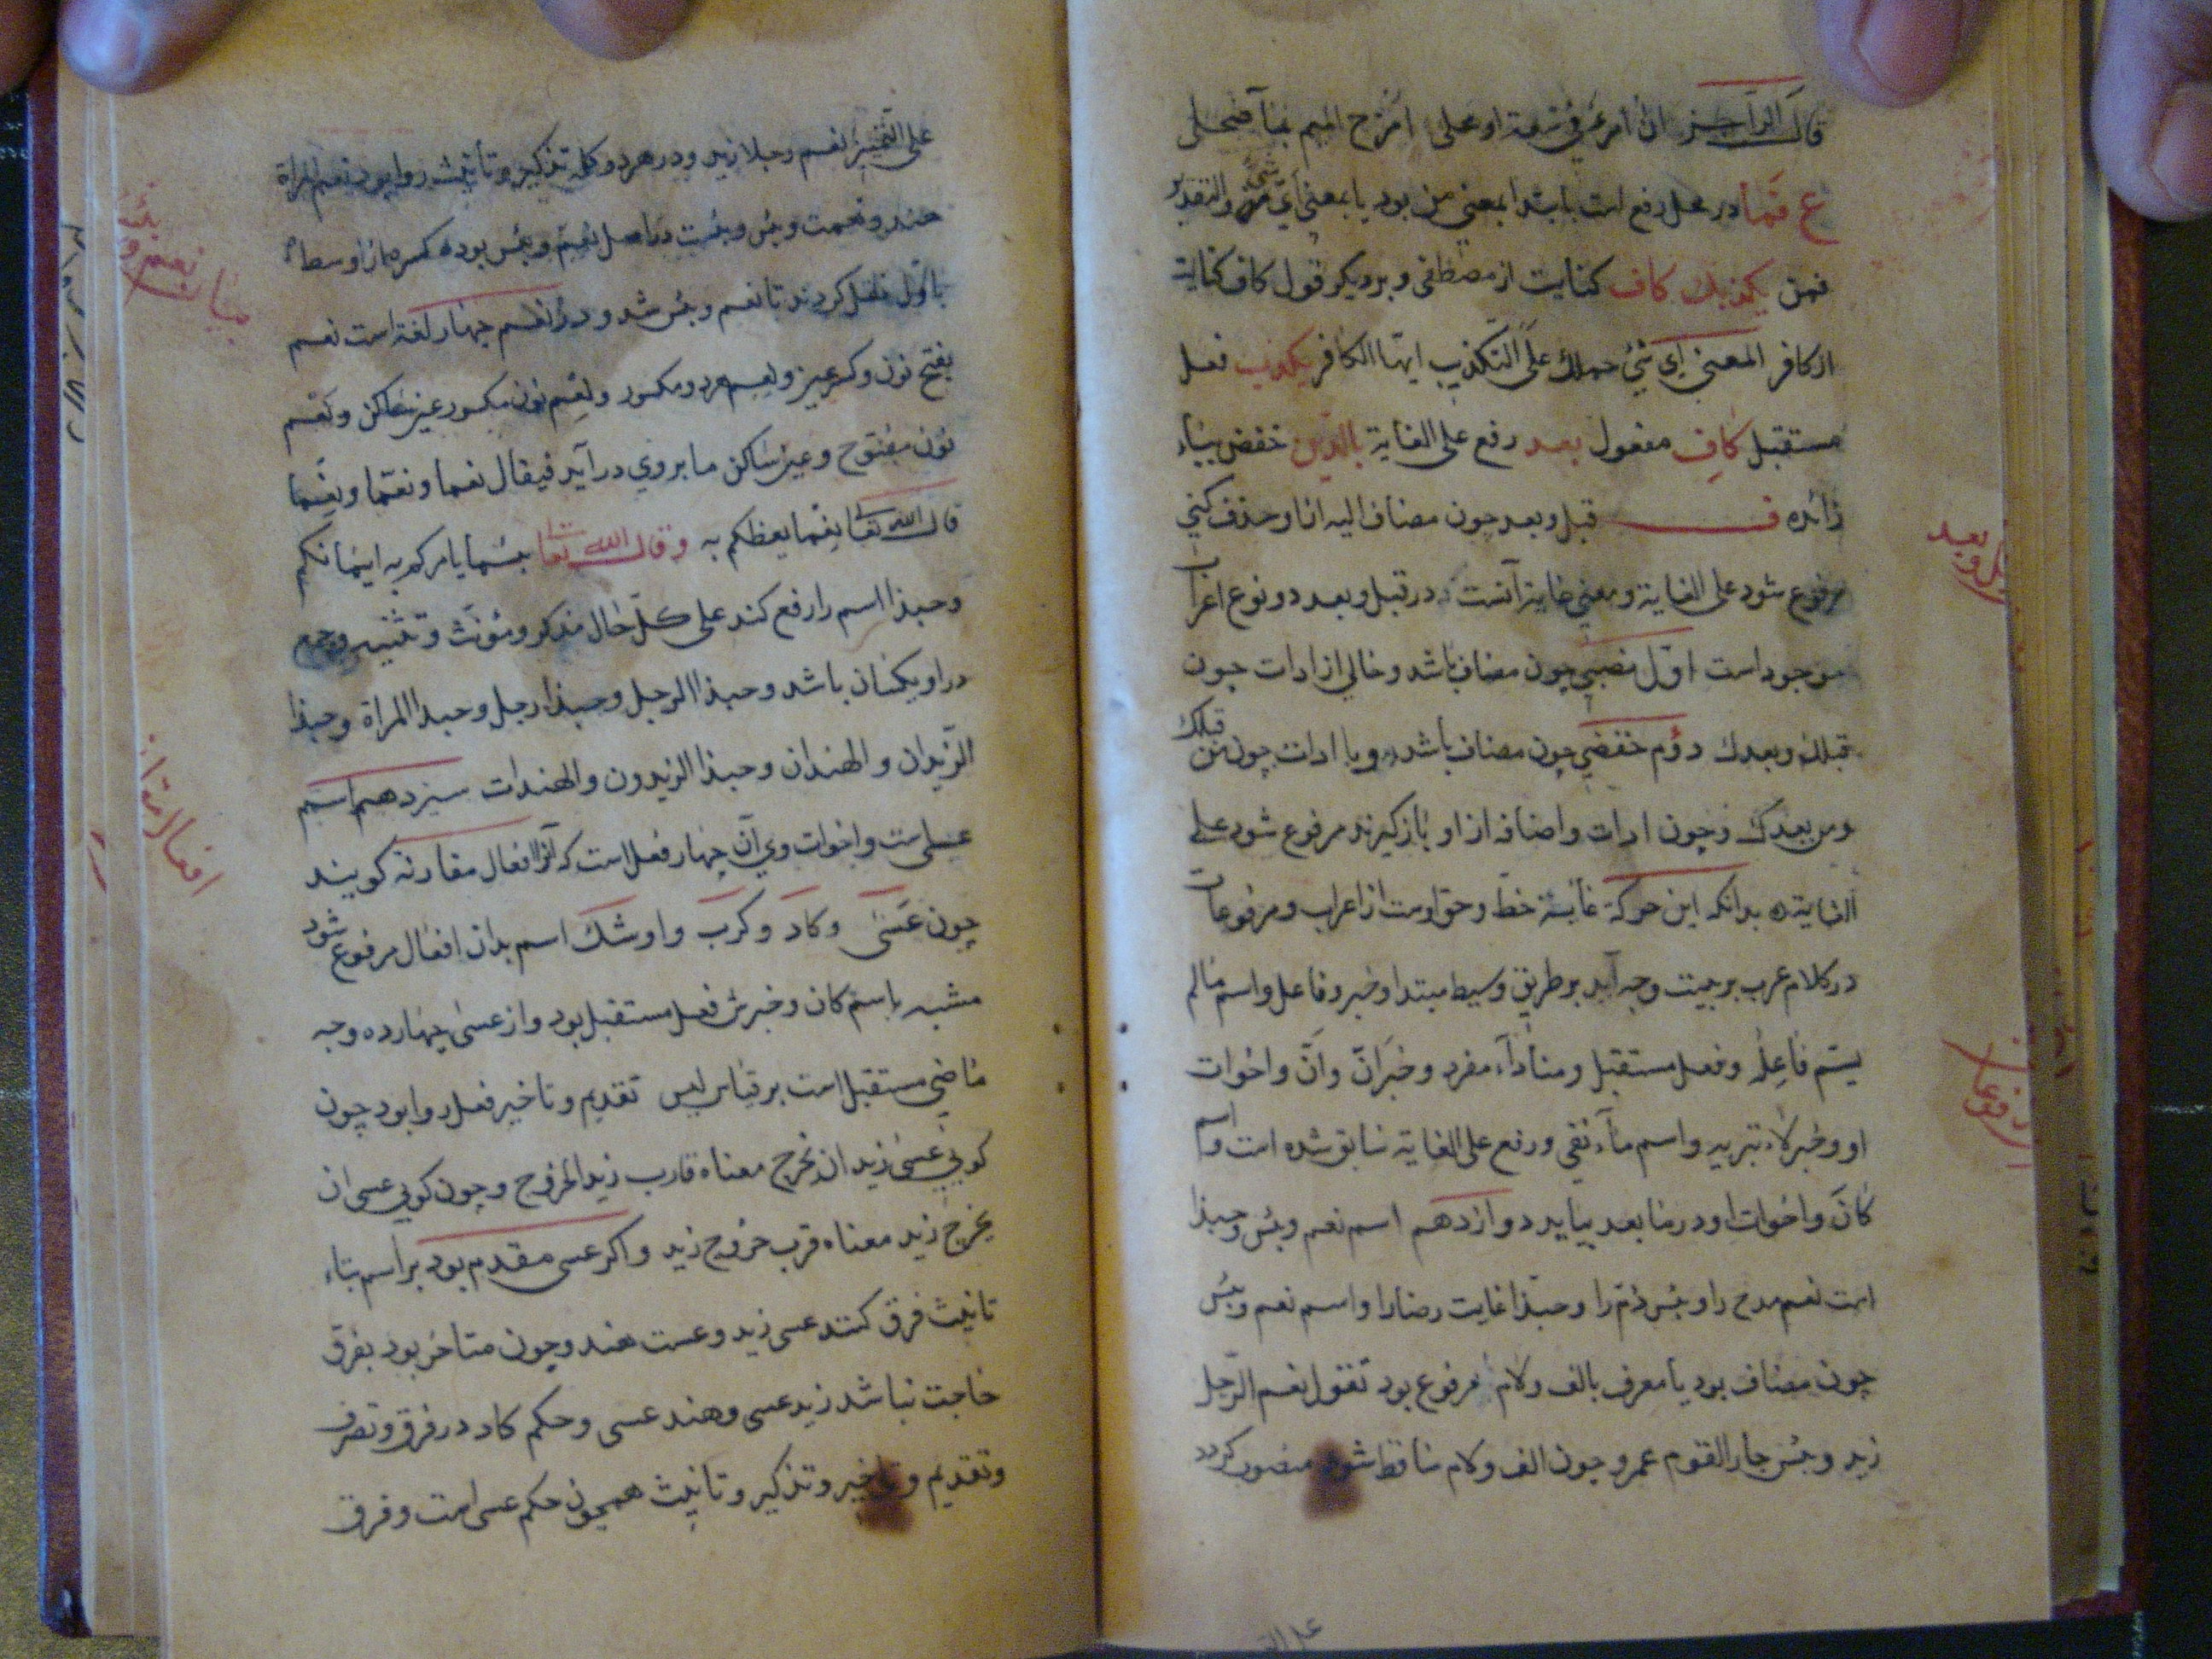 قال الراجز ان امرء في تيمة او عكل امزح الميم بما
ع فما در محل رفع است يا ابتدا بمعنى من بود يا بمعنى اى شئ والتقدير
فمن يكذبك كاف كنايت از مصطفى و بر ديكر قول كاف كنايت
از كافر المعنى اى شئ حملك على التكذيب ايها الكافر يكذب فعل
مستقبل كاف مفعول بعد رفع على الغاية بالدين خفض بباء
زائده ف قبل و بعد چون مضاف اليه انا و حذف كنى
مرفوع شود على الغاية و معنى غاية آنست كه در قبل و بعد دو نوع اعراب
موجود است اول نصبى چون مضاف باشد و خالى از ادات چون
قبلك و بعدك دوم خفضى چون مضاف باشد و با ادات چون من قبلك
و من بعدك و چون ادات و اضافه از او باز كيرند مرفوع شود على
الغاية بدانكه اين حركة غايت خط و حق اوست از اعراب و مرفوعات
در كلام عرب بر بيست وجه آيد بر طريق وسيط مبتدا و خبر و فاعل و اسم ما لم
يسم فاعله و فعل مستقبل و مناداء مفرد و خبر ان و ان و اخوات
او و خبر لاء تبريه و اسم ماء نفى و رفع على الغاية سابق شده است و اسم
كان و اخوات او در ما بعد بيايد دوازدهم اسم نعم و بئس و حبذا
است نعم مدح را و بئس ذم را و حبذا غايت رضا را و اسم نعم و بئس
چون مضاف بود يا معرف بالف و لام مرفوع بود تقول نعم الرجل
زيد و بئس جار القوم عمرو چون الف و لام ساقط شود منصوب كردد
قبل و بعد
مرفوعات
على التمييز نعم رجلا زيد و در هر دو كلمه تذكير و تأنيث روا بود نعم المراة
هند و نعمت و بئس و بئست در اصل نعم و بئس بوده كسره از اوسط
باول نقل كردند تا نعم و بئس شد و در نعم چهار لغة است نعم
بفتح نون و كسر عين و نعم هر دو مكسور و نعم نون مكسور عين ساكن و نعم
نون مفتوح و عين ساكن ما بر وي در آيد فيقال نعما و نعما و نعما
قال الله تعا نعما يعظكم به و قال الله تعا بئسما يامركم به ايمانكم
و حبذا اسم را رفع كند على كل حال مذكر و مؤنث و تثنيه و جمع
در او يكسان باشد و حبذا الرجل و حبذا رجل و حبذا المراة و حبذا
الزيدان و الهندان و حبذا الزيدون و الهندات سيزدهم اسم
عسى است و اخوات وي آن چهار فعل است كه آنرا افعال مقاربة كويند
چون عسى و كاد و كرب و اوشك اسم بدان افعال مرفوع شود
مشبه باسم كان و خبرش فعل مستقبل بود و از عسى چهارده وجه
ماضى مستقبل است بر قياس ليس تقديم و تاخير فعل روا بود چون
كويى عسى زيد ان يخرج معناه قارب زيد الخروج و چون كويى عسى ان
يخرج زيد معناه قرب خروج زيد و اكر عسى مقدم بود بر اسم بتاء
تانيث فرق كنند عسى زيد و عست هند و چون متاخر بود بفرق
حاجت نباشد زيد عسى و هند عسى و حكم كاد در فرق و تصرف
و تقديم و تاخير و تذكير و تانيث همچون حكم عسى است و فرق
بيان نعم و بئس
افعال مقاربة